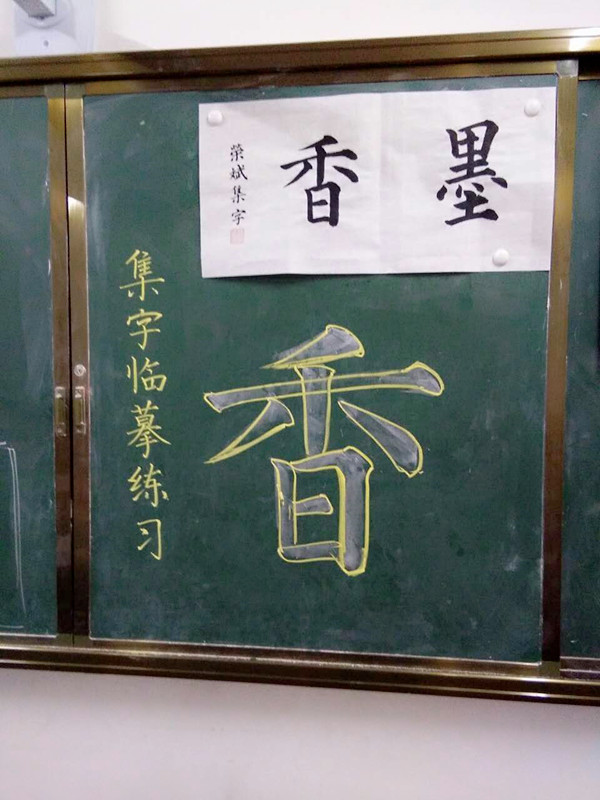 墨香
榮斌集字
集字临摹练习
香